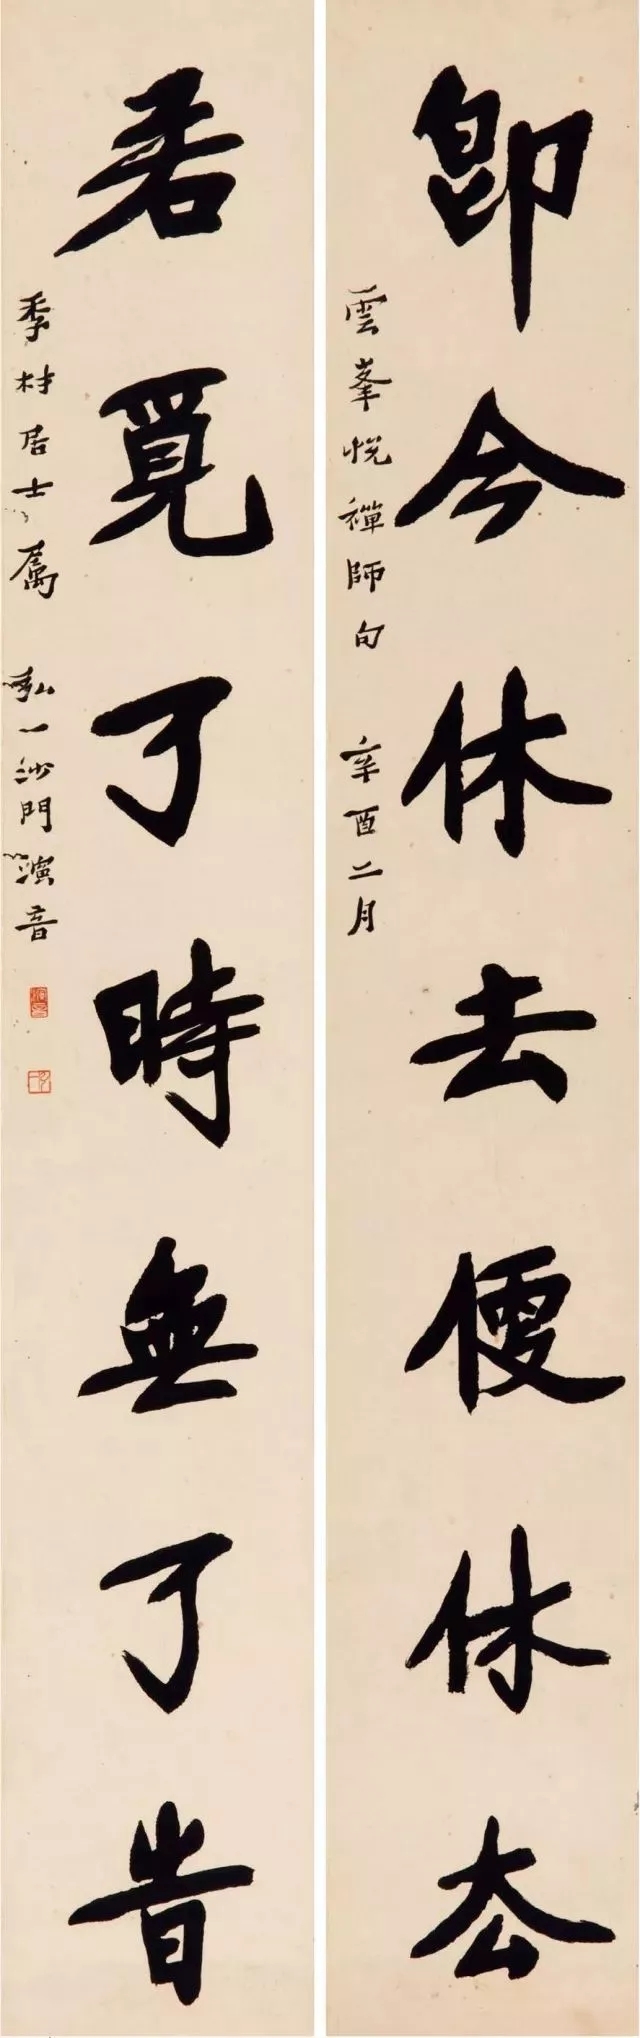 即今休去便休厺
雲峯悅禪師句 辛酉二月
若覓了時無了旹
季村居士属 弘一沙門演音